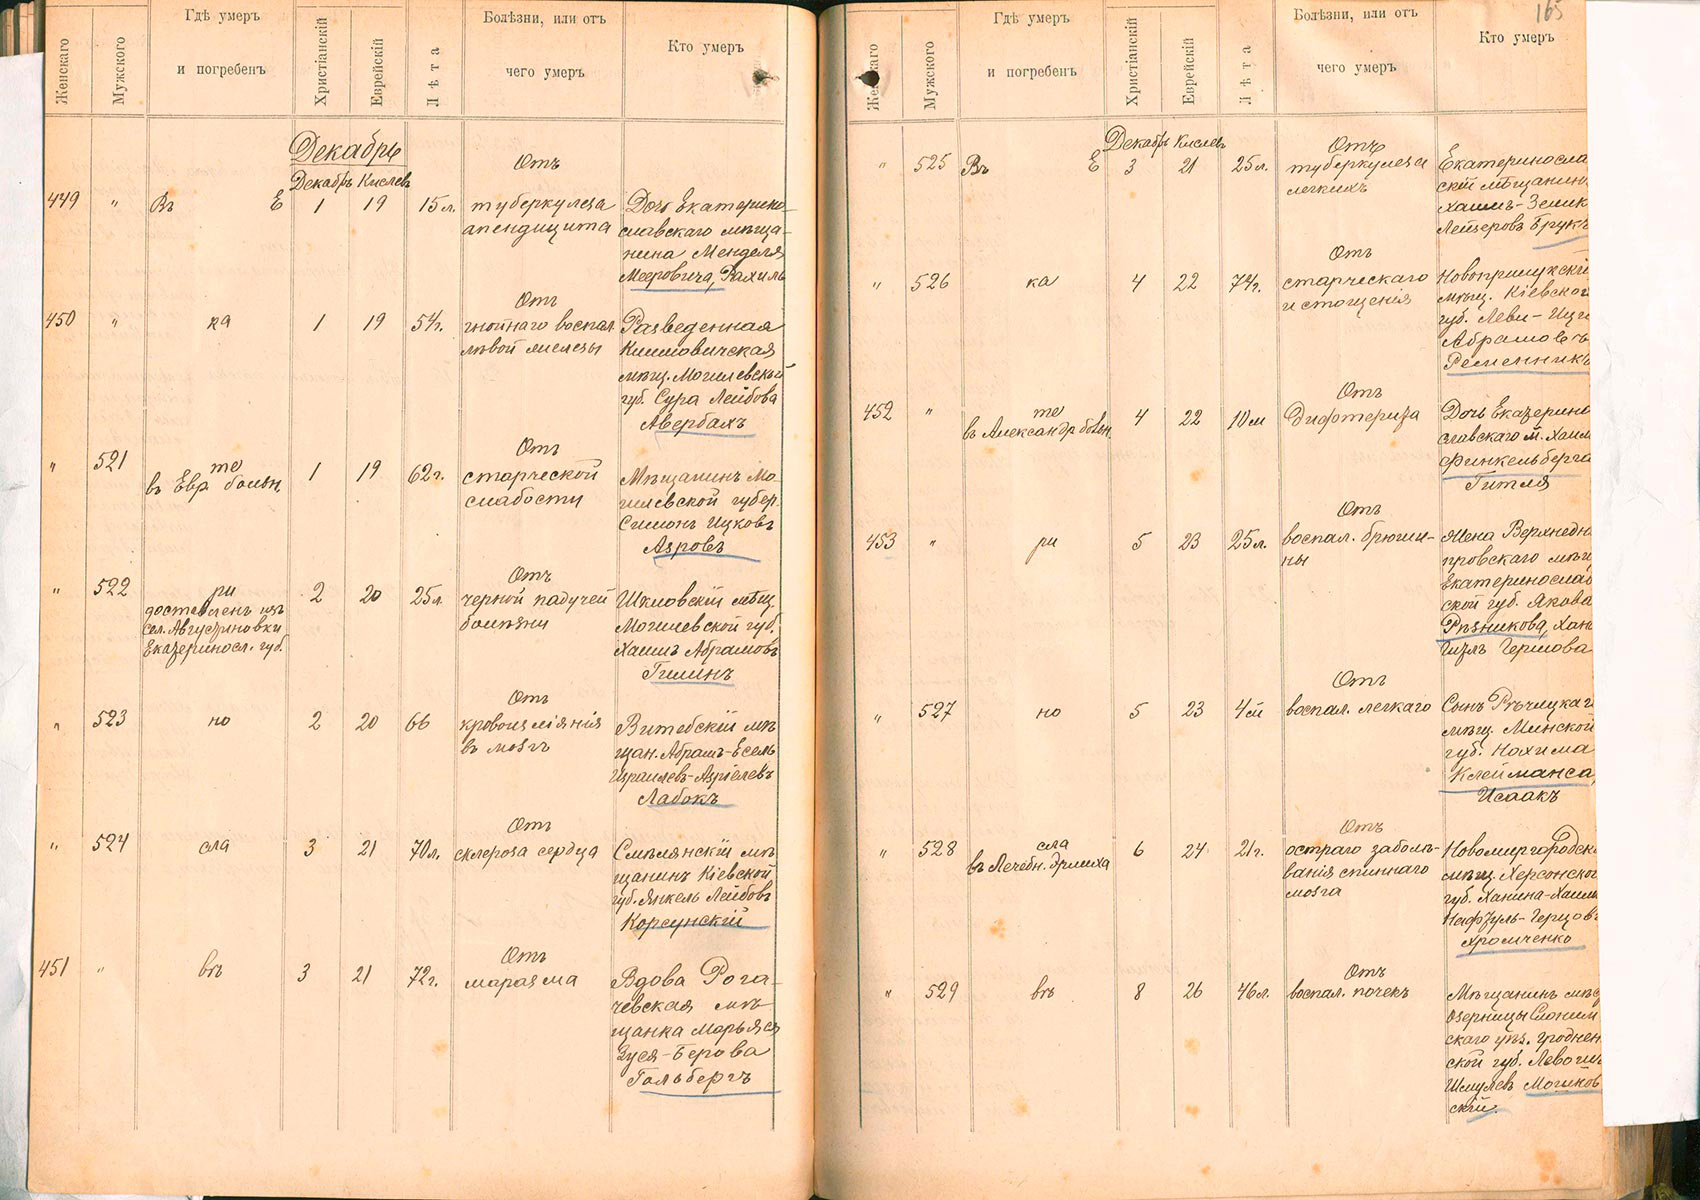 Женскаго
Мужского
Гдѣ умеръ
и погребенъ
Христіанскій
Еврейскій
Лѣта
Болѣзни, или отъ
чего умеръ
Кто умеръ
Декабрь
Декабрь Кислевъ
449 " Въ Е 1 19 15 л.
Отъ
туберкулеза
апендицита
Дочь Екатерино-
славскаго мѣща-
нина Менделя
Мееровича, Рахиль
450 " ка 1 19 54 г.
Отъ
гнойнаго воспал.
лѣвой железы
Разведенная
Климовичская
мѣщ. Могилевской
губ. Сура Лейбова
Авербахъ
" 521 те
въ Евр. больн. 1 19 62 г.
Отъ
старческой
слабости
Мѣщанинъ Мо-
гилевской губер.
Симонъ Ицковъ
Азровъ
" 522 ри
доставленъ изъ
сел. Августиновки
Екатеринос. губ.
2 20 25 л.
Отъ
черной падучей
болѣзни
Шкловскій мѣщ.
Могилевской губ.
Хаимъ Абрамовъ
Гилинъ
" 523 но 2 20 66
Отъ
кровоизліянія
въ мозгъ
Витебскій мѣ-
щан. Абрамъ-Есель
Израилевъ-Азріелевъ
Лабокъ
" 524 сла 3 21 70 л.
Отъ
склероза сердца
Смѣлянскій мѣ-
щанинъ Кіевской
губ. Янкель Лейбовъ
Корсунскій
451 " въ 3 21 72 г.
Отъ
маразма
Вдова Рога-
чевская мѣ-
щанка Марьяся
Зуся-Берова
Гольбергъ
165
Женскаго
Мужского
Гдѣ умеръ
и погребенъ
Христіанскій
Еврейскій
Лѣта
Болѣзни, или отъ
чего умеръ
Кто умеръ
Декабрь Кислев
" 525 Въ Е 3 21 25 л.
Отъ
туберкулеза
легкихъ
Екатеринослав
скій мѣщанинъ
Хаимъ-Зелик
Лейзеровъ Брукъ
" 526 ка 4 22 74 г.
Отъ
старческаго
истощенія
Новоприлукскій
мѣщ. Кіевской
губ. Леви-Ицк
Абрамовъ
Ременникъ
452 " те
въ Александр. больн. 4 22 10 м
Отъ
Дифтерита
Дочь Екатерино
славскаго м. Хаим
Финкельберга
Гитля
453 " ри 5 23 25 л.
Отъ
воспал. брюши-
ны
Жена Верхнедн
провскаго мѣщ
Екатеринослав
ской губ. Якова
Рѣзникова, Хан
Гизль Гершова
" 527 но 5 23 4 м
Отъ
воспал. легкаго
Сынъ Рѣчицкаг
мѣщ. Минской
губ. Нохима
Клейманса,
Исаакъ
" 528 сла
въ Лечебн. Эрлиха 6 24 21 г.
Отъ
остраго заболѣ-
ванія спиннаго
мозга
Новомиргородск
мѣщ. Херсонской
губ. Ханина-Хаим
Нафтуль-Герцовъ
Хромченко
" 529 въ 8 26 46 л.
Отъ
воспал. почекъ
Мѣщанинъ мѣс
Озерницы Слоним
скаго уѣз. Гроднен
ской губ.
Шмулевъ Могилов
скій.